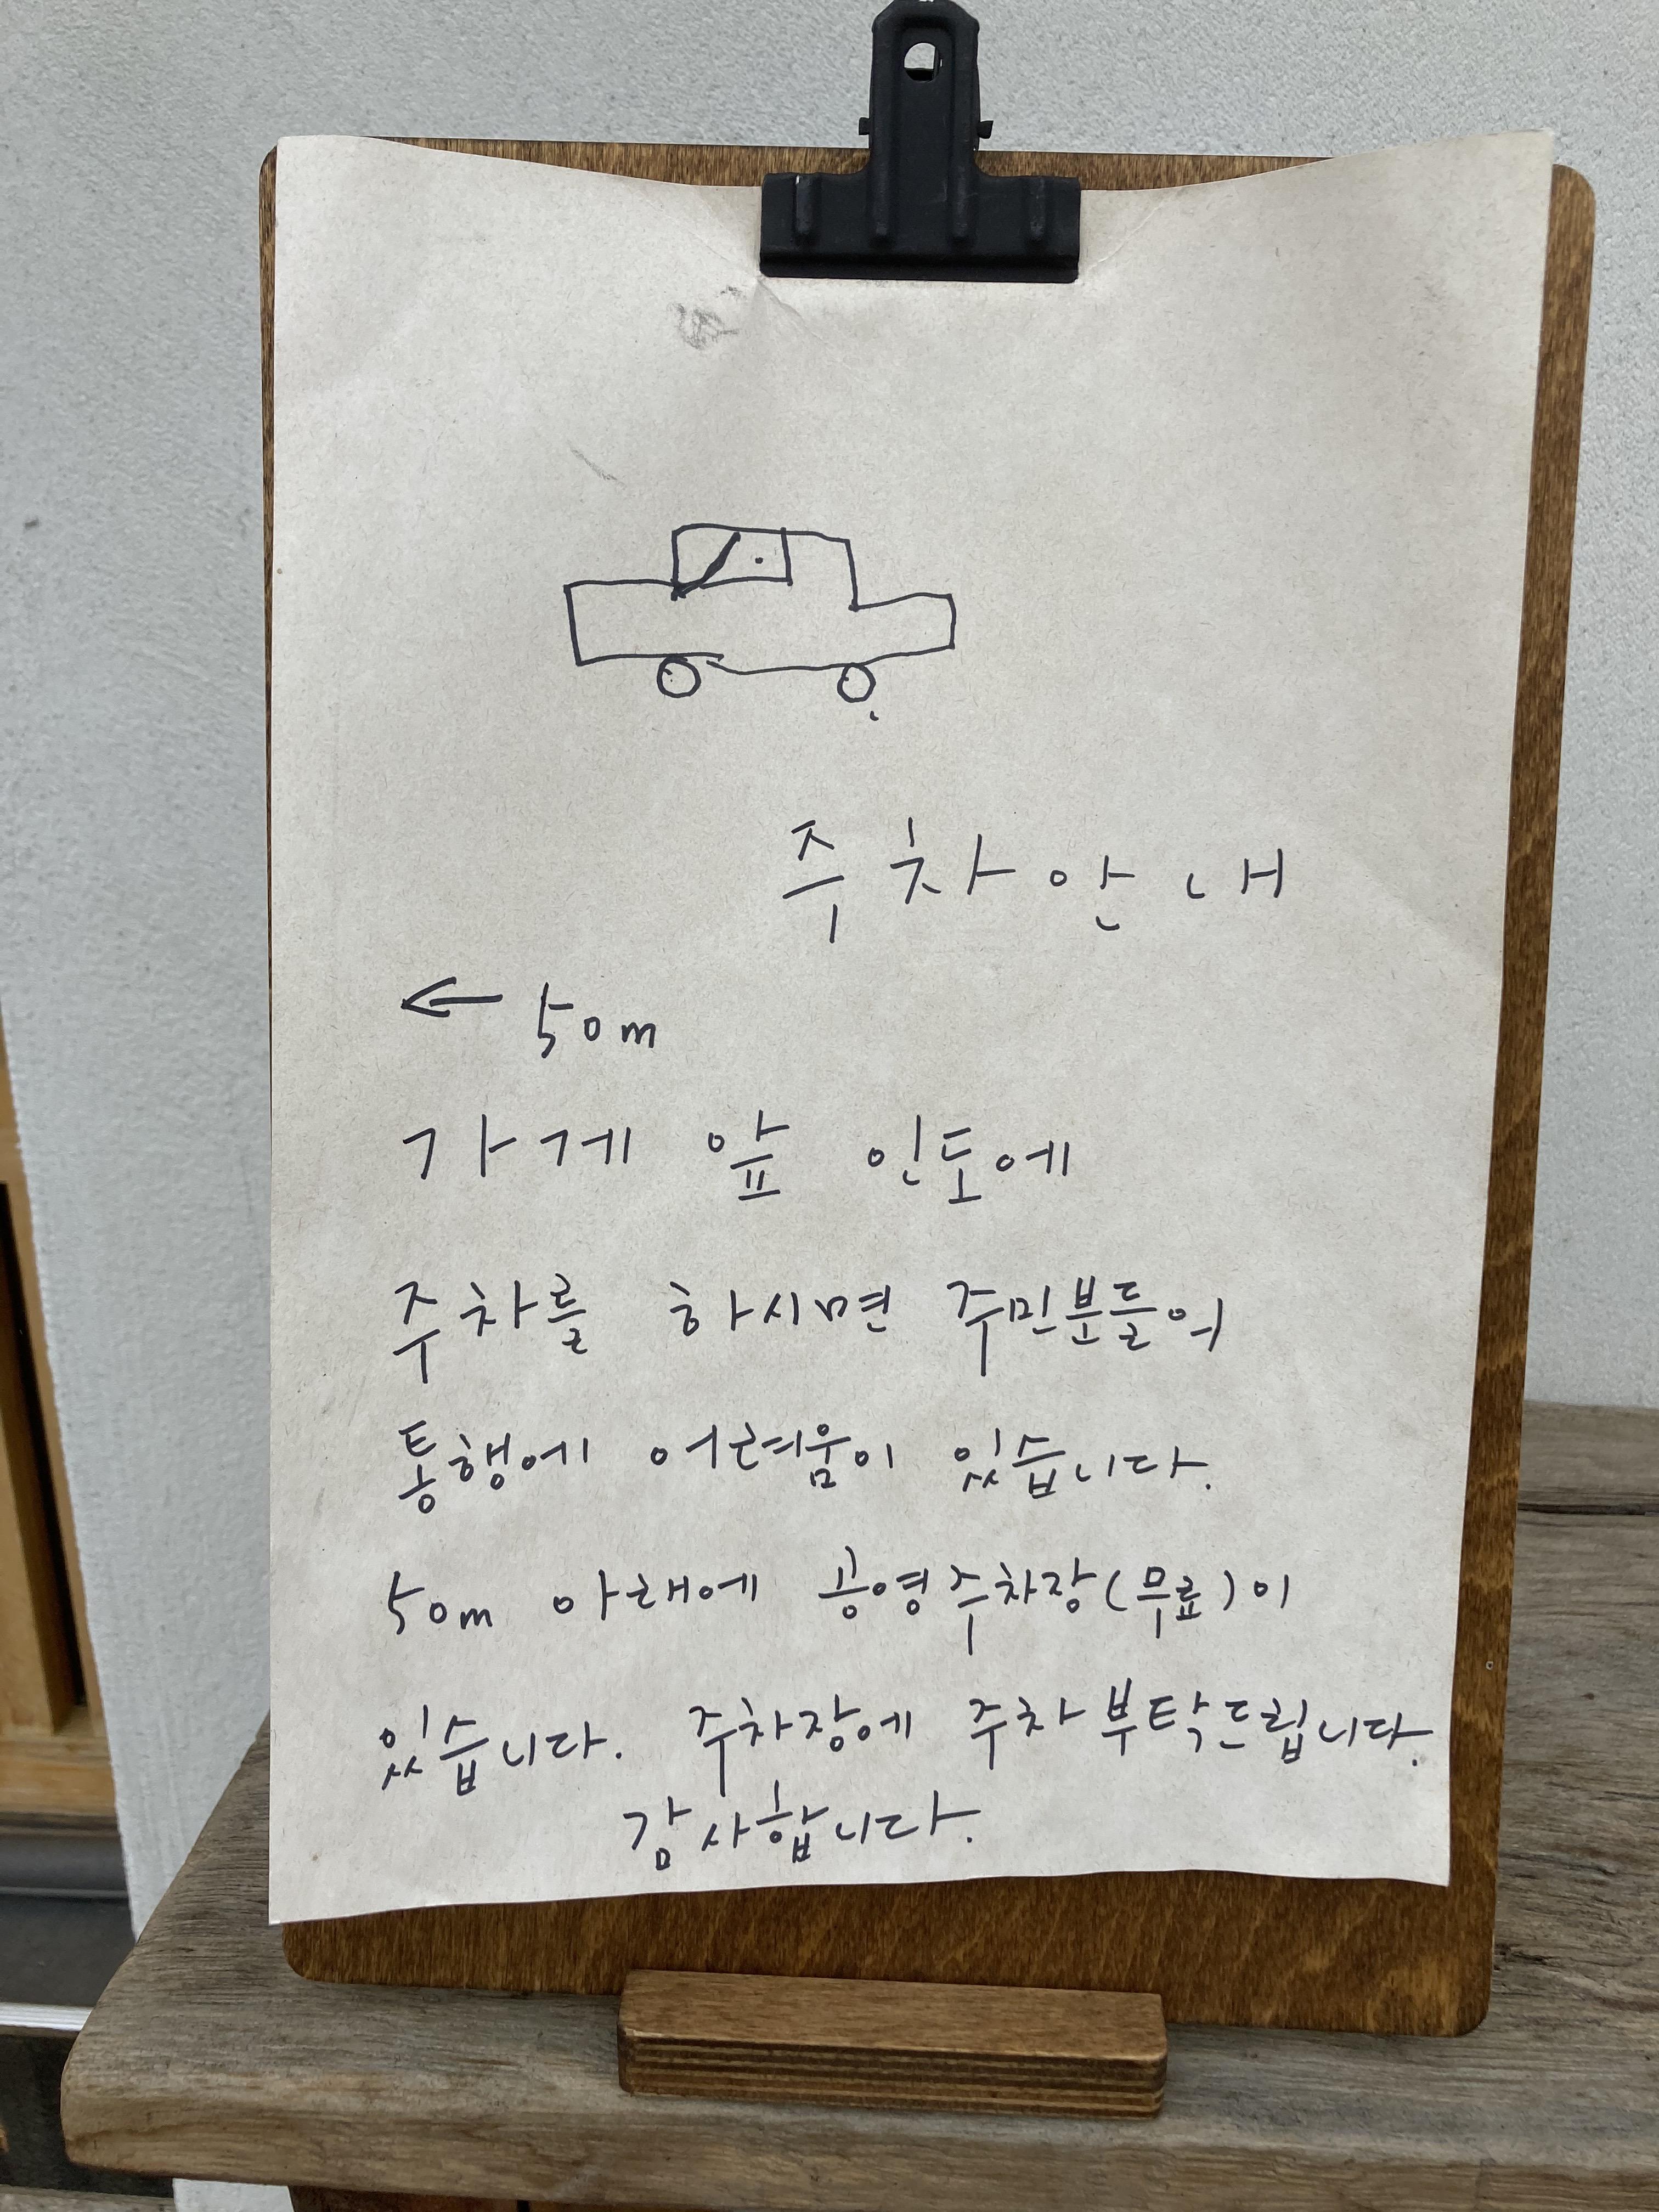 주차안내
← 50m
가게 앞 인도에
주차를 하시면 주민분들의
통행에 어려움이 있습니다.
50m 아래에 공영주차장(무료)이
있습니다. 주차장에 주차부탁드립니다.
감사합니다.